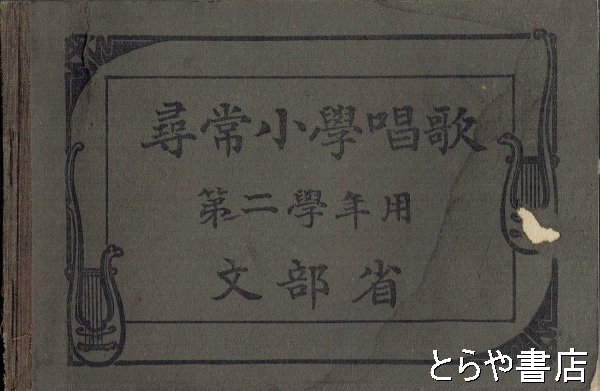 尋常小學唱歌
第二學年用
文部省
とらや書店